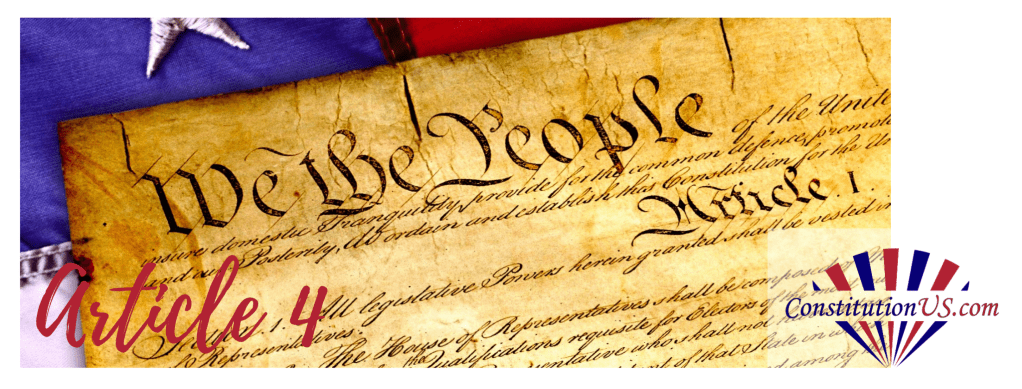 We the People
of the Unite
insure domestic Tranquility, provide for the common defence, promote
and our Posterity, do ordain and establish this Constitution for the Un
Article. I.
All legislative Powers herein granted shall be vested in
Representatives.
The House of Representatives shall be composed of
Qualifications requisite for Electors of the
who shall not
of that State in
among the
Article 4
ConstitutionUS.com